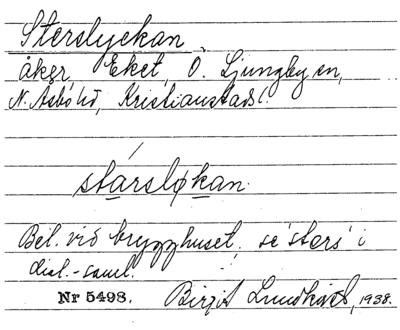 Sterslyckan
åker, Eket, Ö. Ljungby sn,
N. Åsbo hd, Kristianstads l.
stársløkan.
Bel. vid brygghuset, se "sters" i
dial.-saml.
Nr 5498. Birgit Lundkvist, 1938.